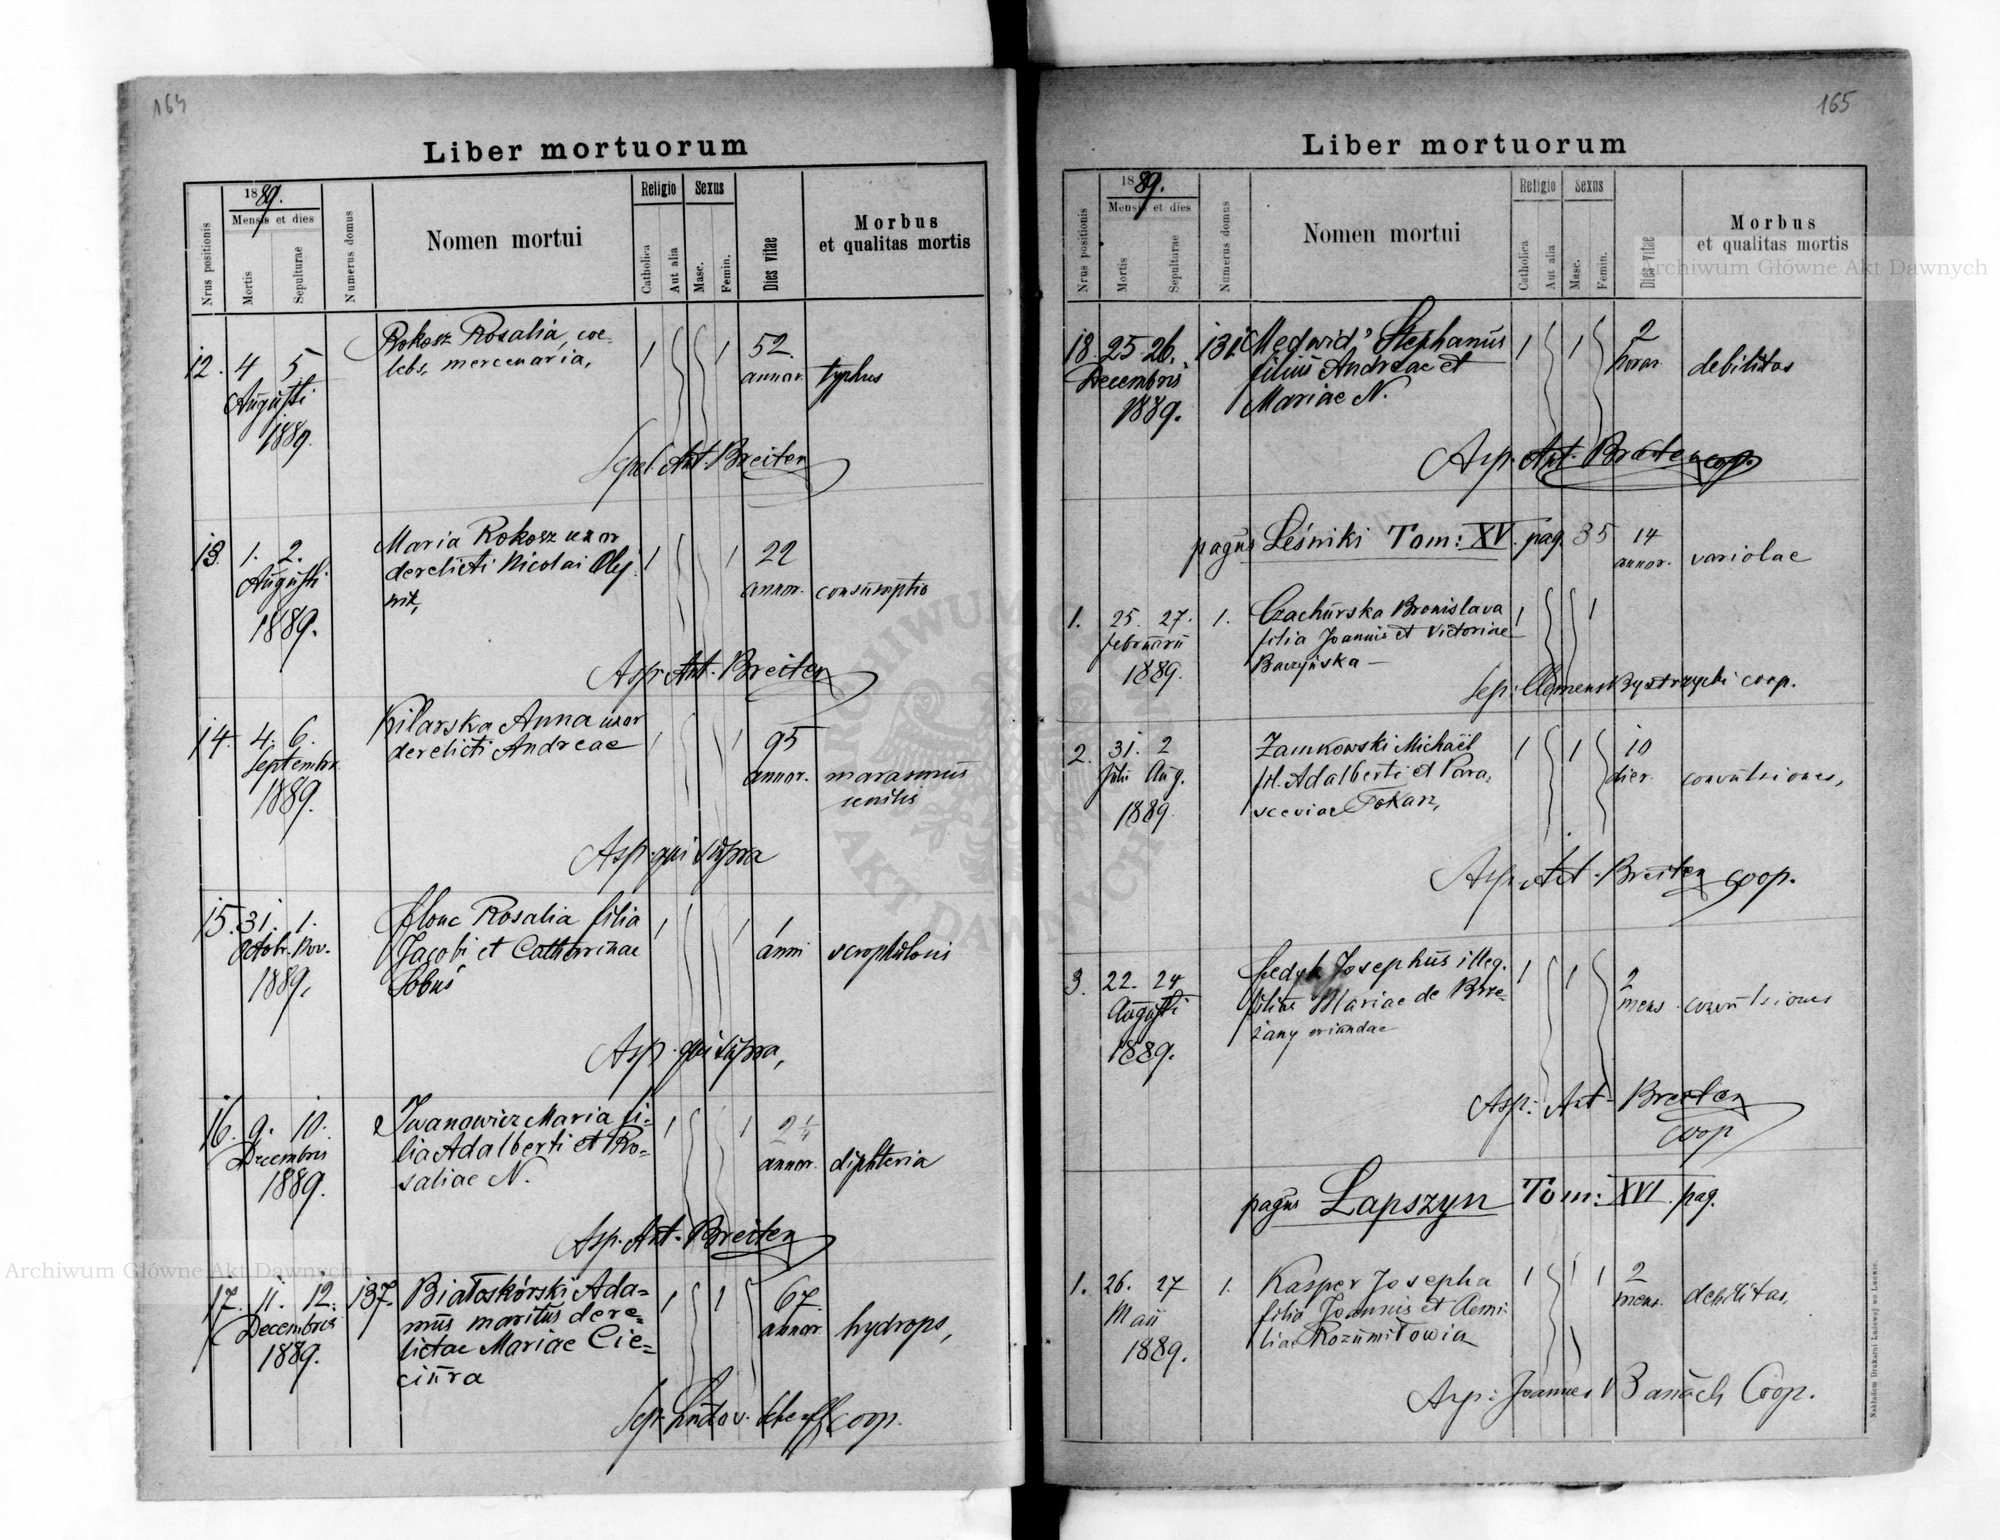 164
Liber mortuorum
Nrus positionis
1889.
Mensis et dies
Mortis
Sepulturae
Numerus domus
Nomen mortui
Religio
Catholica
Aut alia
Sexus
Masc.
Femin.
Dies vitae
Morbus
et qualitas mortis
12. 4 5 Rokosz Rosalia, coe- 1 1 52.
Augusti lebs, mercenaria, annor. typhus
1889.
Sepel. Ant. Breiten
13. 1. 2. Maria Rokosz uxor 1 1 22
Augusti derelicti Nicolai Olej annor. consumptio
1889. nik,
Asp. Ant. Breiten
14. 4. 6. Kilarska Anna uxor 1 1 95
Septembr. derelicti Andreae annor. marasmus
1889. senilis
Asp. qui supra
15. 31. 1. Rosalia filia 1 1
Octobr. Nov. Jacobi et Catharinae anni scrophulosis
1889. Sobus
Asp. qui supra,
16. 9. 10. Iwanowicz Maria fi- 1 1 2 1/4
Decembris lia Adalberti et Ro= annor. diphteria
1889. saliae N.
Asp. Ant. Breiten
17. 11. 12. 137. Białoskórski Ada= 1 1 67.
Decembris mus maritus dere= annor hydrops,
1889. lictae Mariae Cie=
ciura
Sep. Ludov. coop.
165
Liber mortuorum
Nrus positionis
1889.
Mensis et dies
Mortis
Sepulturae
Numerus domus
Nomen mortui
Religio
Catholica
Aut alia
Sexus
Masc.
Femin.
Dies vitae
Morbus
et qualitas mortis
18. 25 26. 131 Medwid' Stephanus 1 1 2
Decembris filius Andreae et horar debilitas
1889. Mariae N.
Asp. Ant. Breiten coop.
pagus Leśniki Tom: XV. pag. 35 14
annor. variolae
1. 25. 27. 1. Czachurska Bronislava 1 1
februarii filia Joannis et Victoriae
1889. Baczyńska —
Sep: Clemens Bystrzycki coop.
2. 31. 2 Zamkowski Michaël 1 1 10
Julii Aug. fil. Adalberti et Para, dier. convulsiones,
1889 sceviae Tokarz,
Asp. Ant. Breiten coop.
3. 22. 24 Fedyk Josephus illeg. 1 1 2
Augusti filius Mariae de Brze- mens. convulsiones
1889. żany oriundae
Asp: Ant. Breiten
coop
pagus Lapszyn Tom: XVI. pag.
1. 26. 27 1. Kasper Josepha 1 1 1 2
Maii filia Joannis et Aemi- mens. debilitas,
1889. liae Rozumiłowia
Asp: Joannes Banach Coop.
Nakładem Drukarni Ludowej we Lwowie.
Archiwum Główne Akt Dawnych
Archiwum Główne Akt Dawnych
ARCHIWUM
AKT DAWNYCH